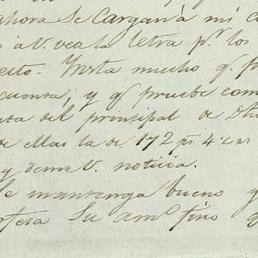 ahora se cargan á mi c
á V. vea la letra pr. los
ecto. Insta mucho q. p
cuenta, y q. pruebe com
del principal de dh
de ellas la de 172 ps 4
y deme V. noticia.
Se mantenga bueno y
su amo. fino q